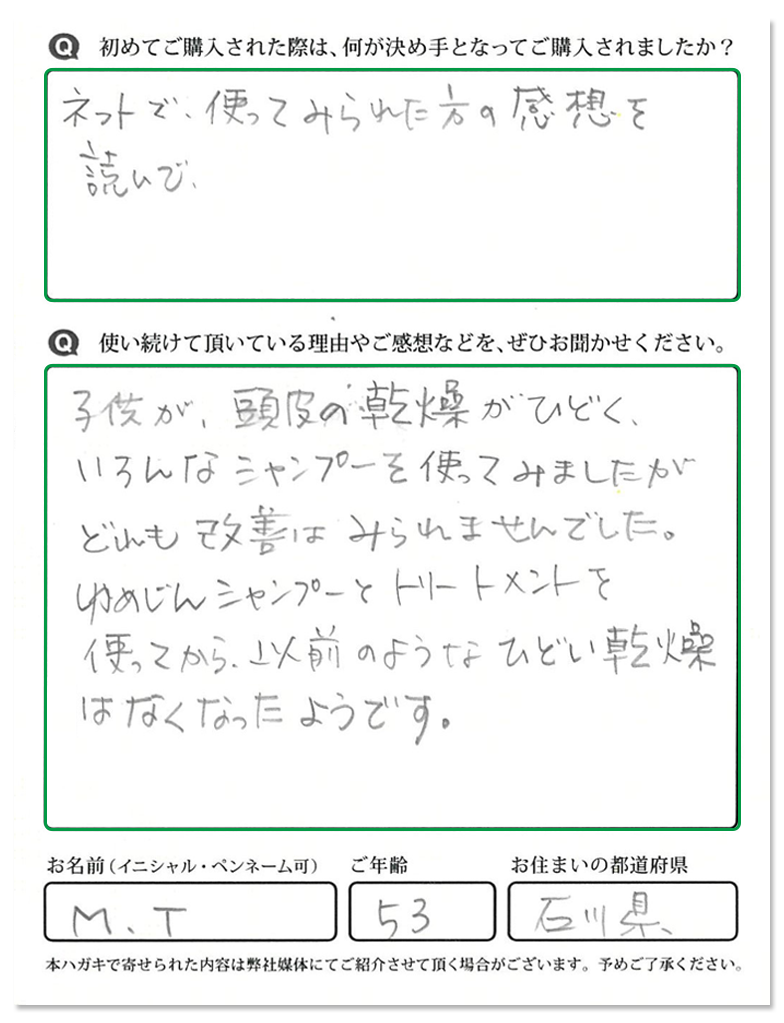 Q 初めてご購入された際は、何が決め手となってご購入されましたか?
ネットで、使ってみられた方の感想を
読んで、
Q 使い続けて頂いている理由やご感想などを、ぜひお聞かせください。
子供が、頭皮の乾燥がひどく、
いろんなシャンプーを使ってみましたが
どれも改善はみられませんでした。
ゆめじんシャンプーとトリートメントを
使ってから、以前のようなひどい乾燥
はなくなったようです。
お名前(イニシャル・ペンネーム可) ご年齢 お住まいの都道府県
M.T 53 石川県、
本ハガキで寄せられた内容は弊社媒体にてご紹介させて頂く場合がございます。予めご了承ください。